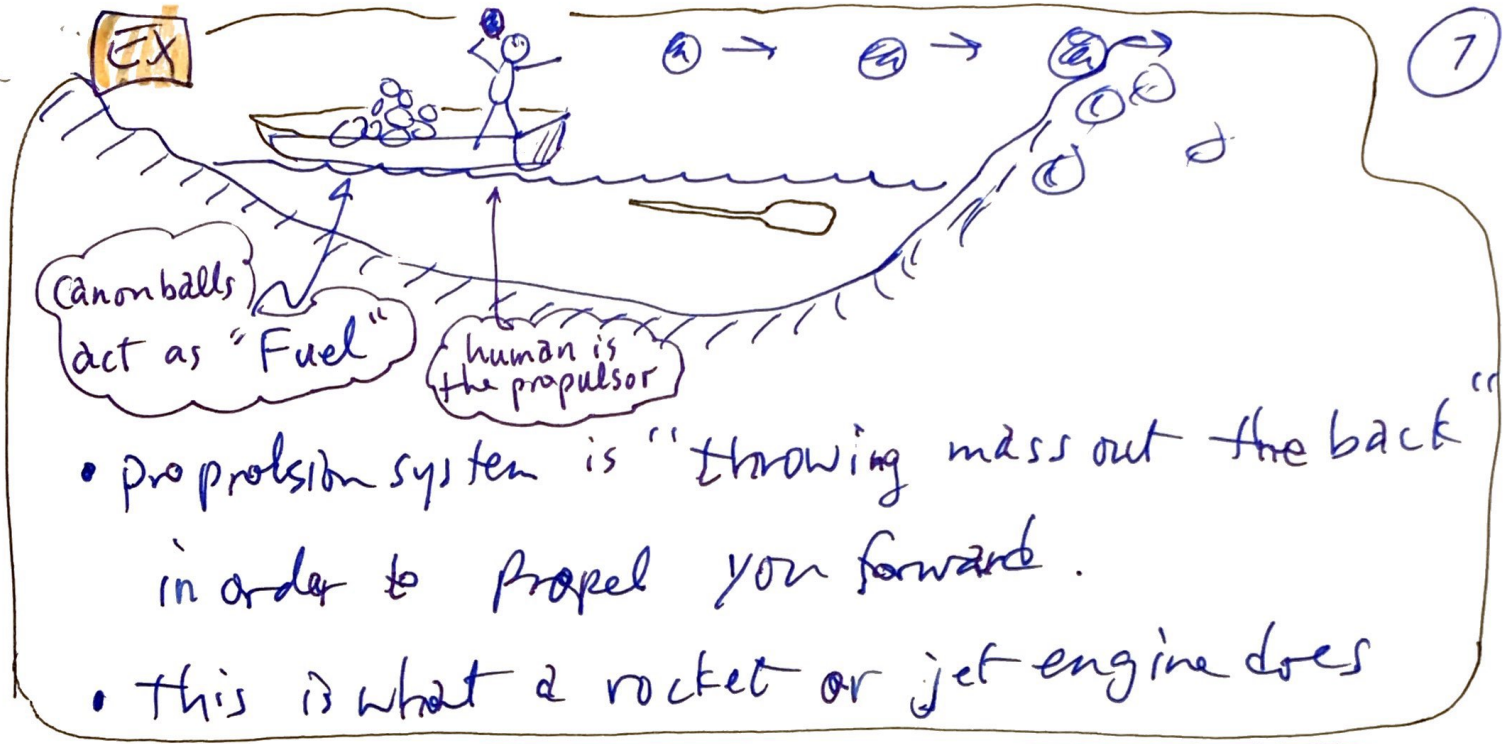 EX
7
Canonballs
act as "Fuel"
human is
the propulsor
• proprolsion system is "throwing mass out the back"
in order to propel you forward.
• this is what a rocket or jet engine does